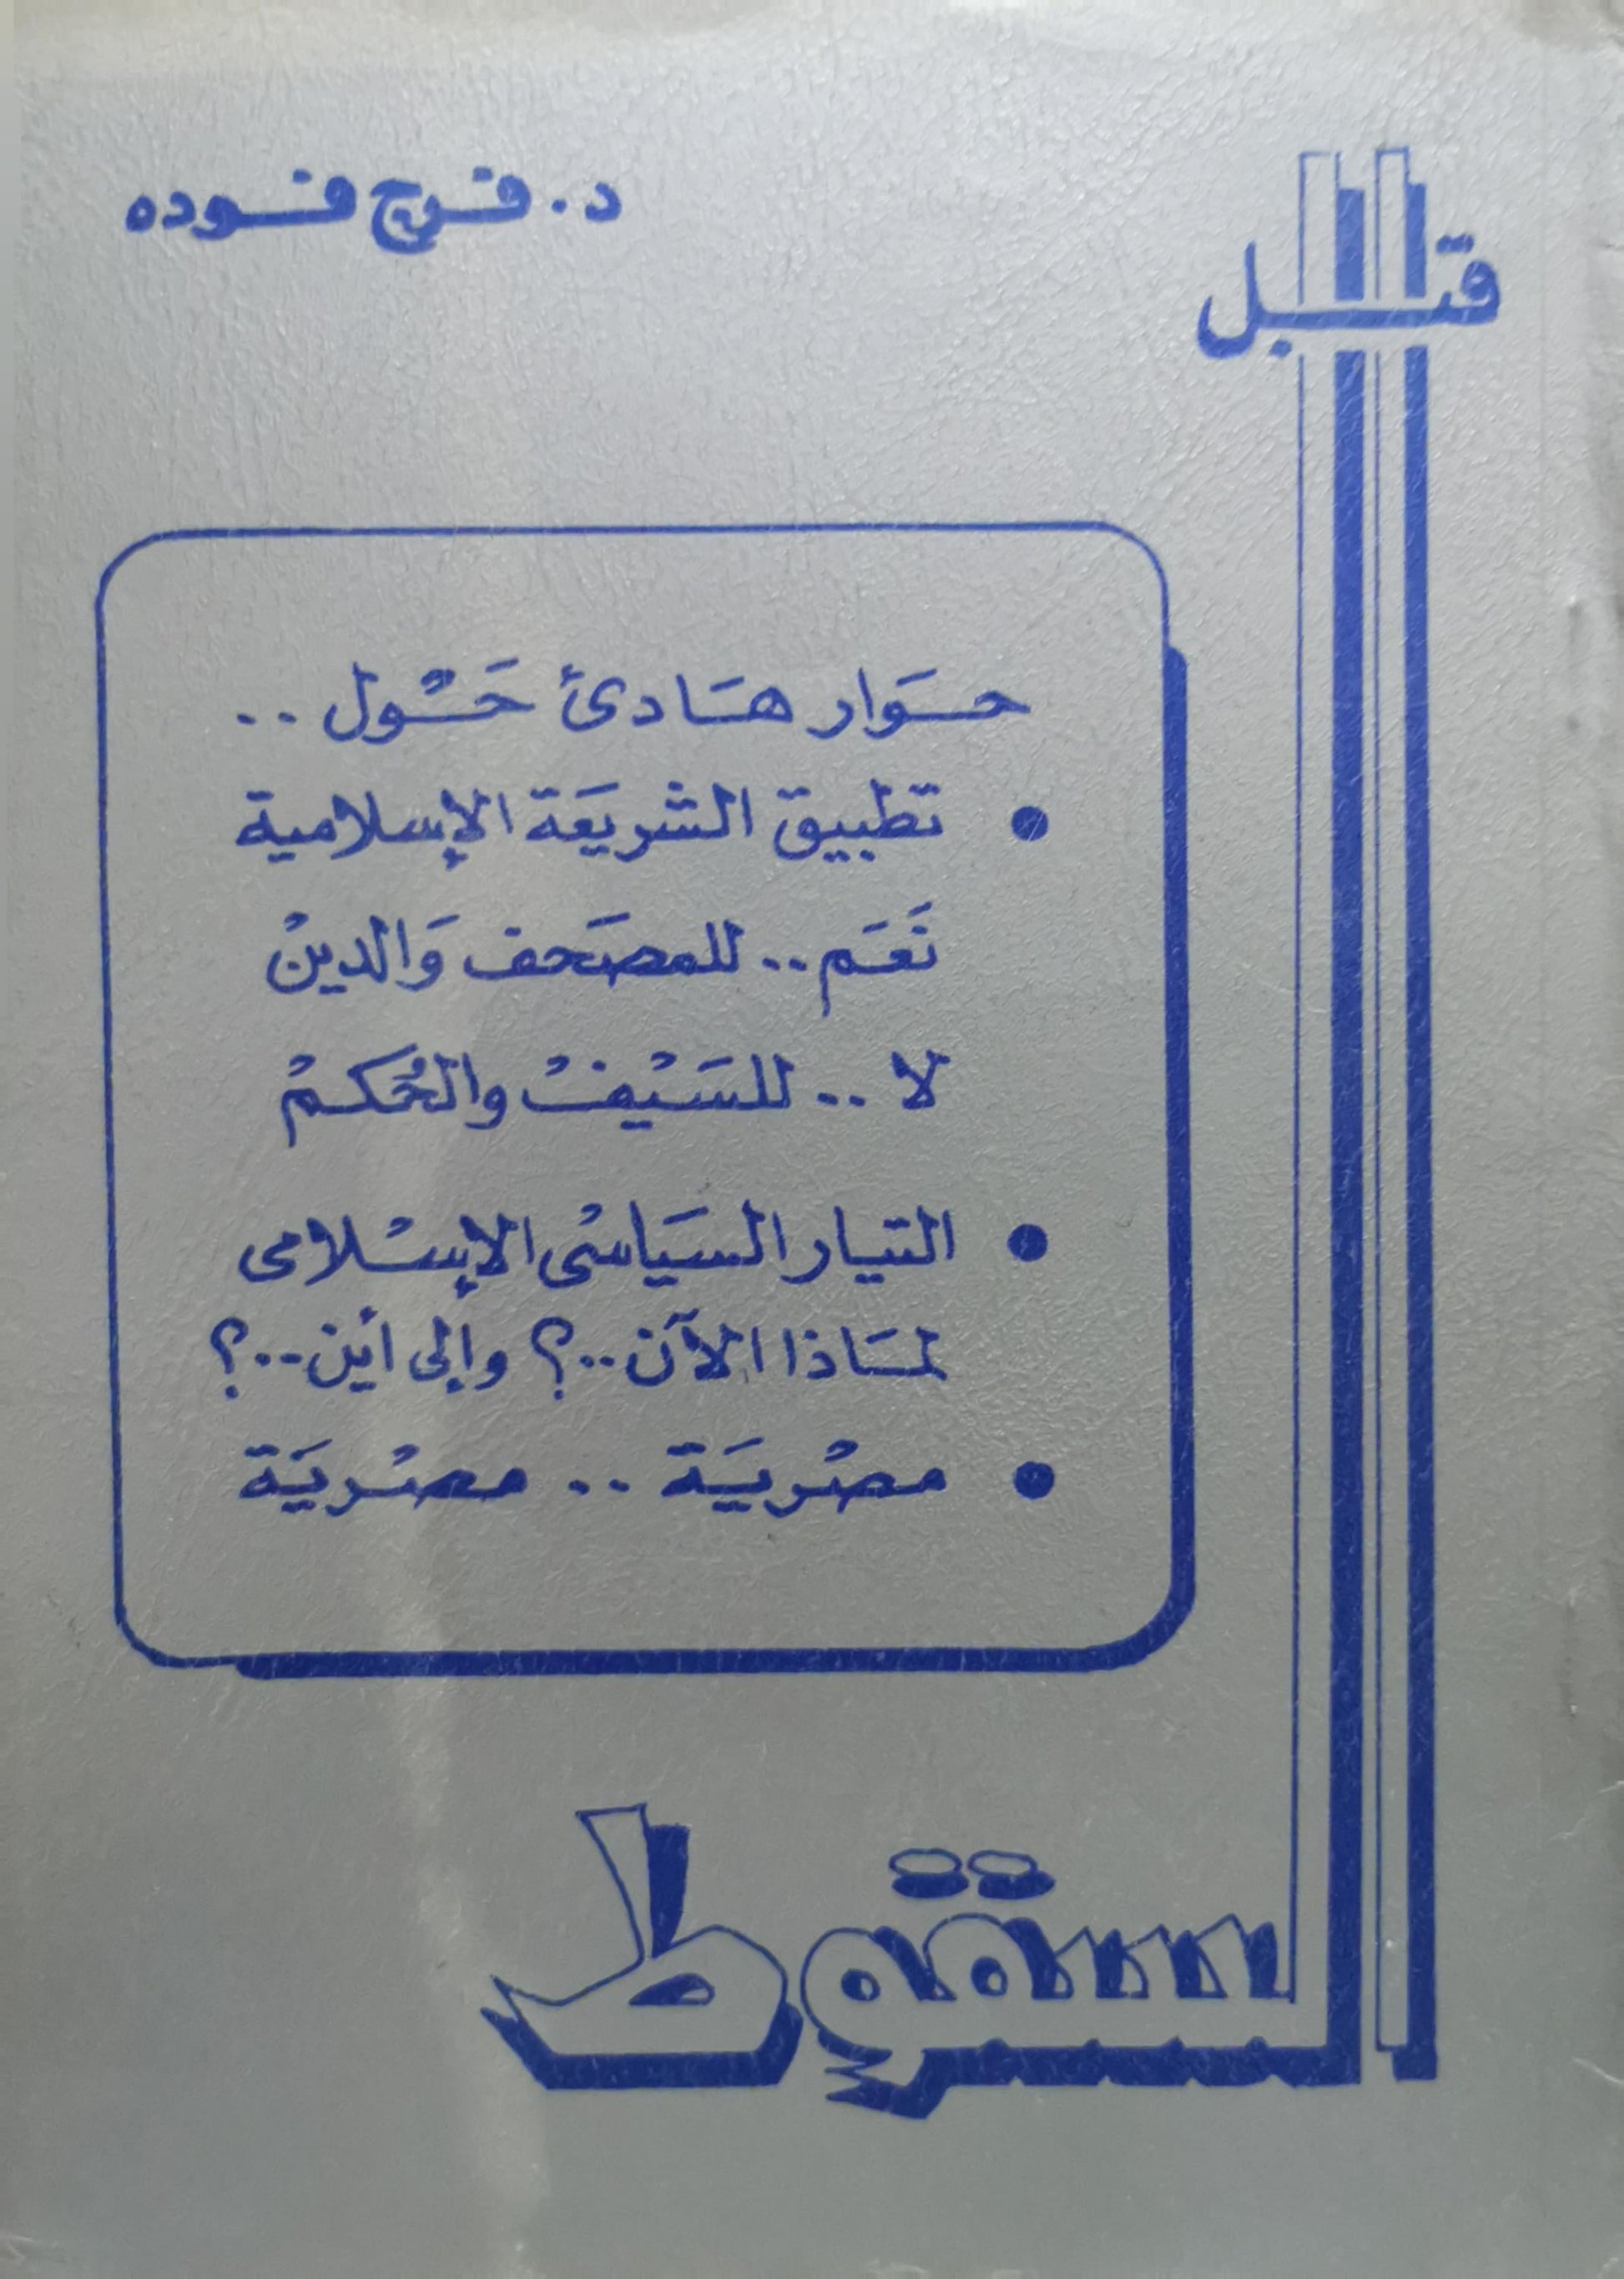 د. فرج فوده
قبل
حَوَار هَادئ حَوْل ..
• تطبيق الشريعَة الإسلامية
نَعَم .. للمصَحف وَالدينْ
لا .. للسَيْفْ والحُكمْ
• التيار السَياسْى الإسْلامى
لمَاذا الآن ..؟ وإلى أين ..؟
• مصْريَة .. مصْريَة
السقوط